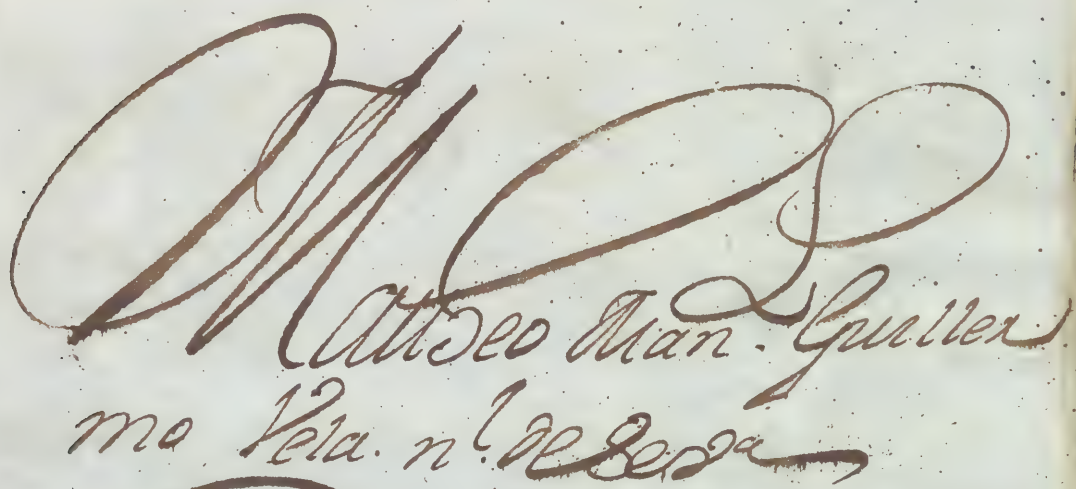 Mattheo Man. Guiller
mo Vela. n.l de